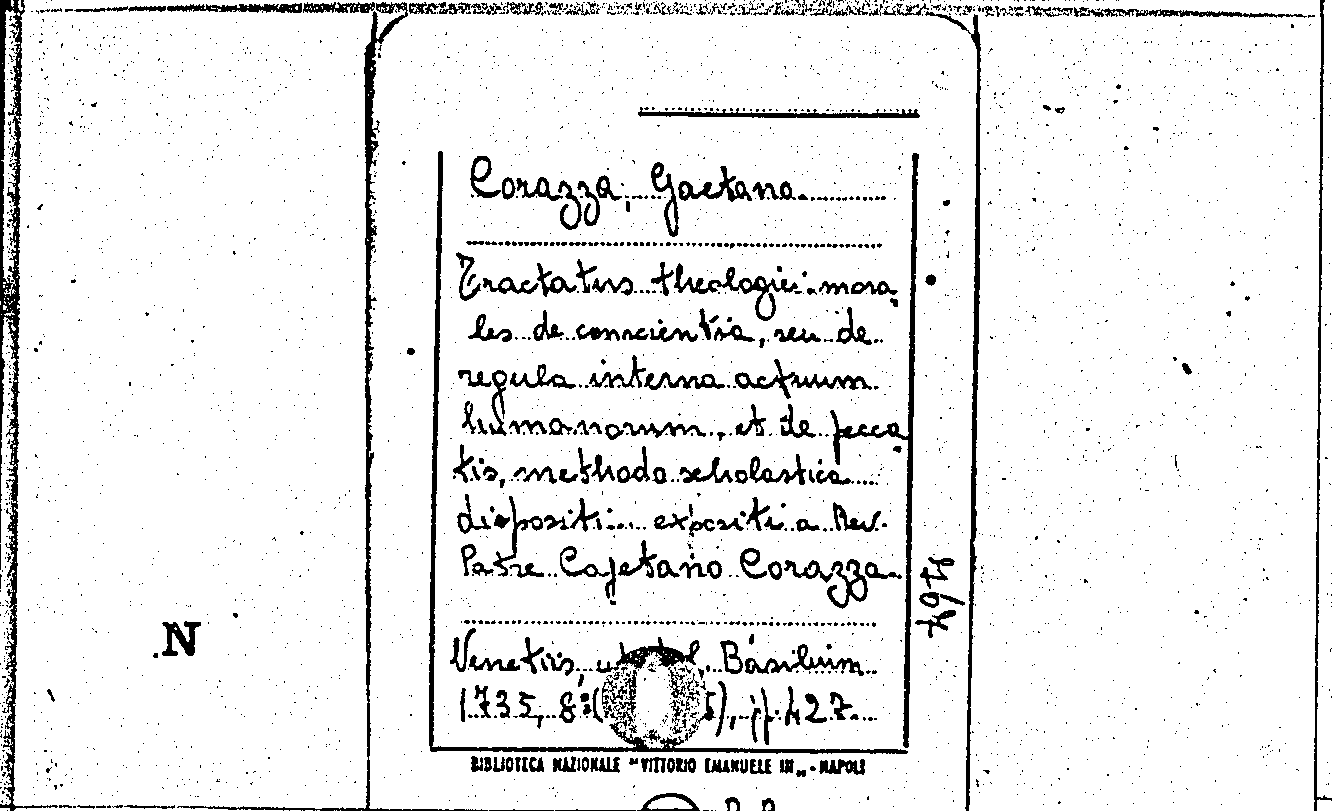 Corazza, Gaetano.
Tractatus theologici-mora-
les de conscientia, seu de
regula interna actuum
humanorum, et de pecca-
tis, methodo scholastica
dispositi... expositi a Rev.
Patre Cajetano Corazza.
Venetiis, Basilium
1735, 8° pp. 427.
BIBLIOTECA NAZIONALE "VITTORIO EMANUELE III" - NAPOLI
N